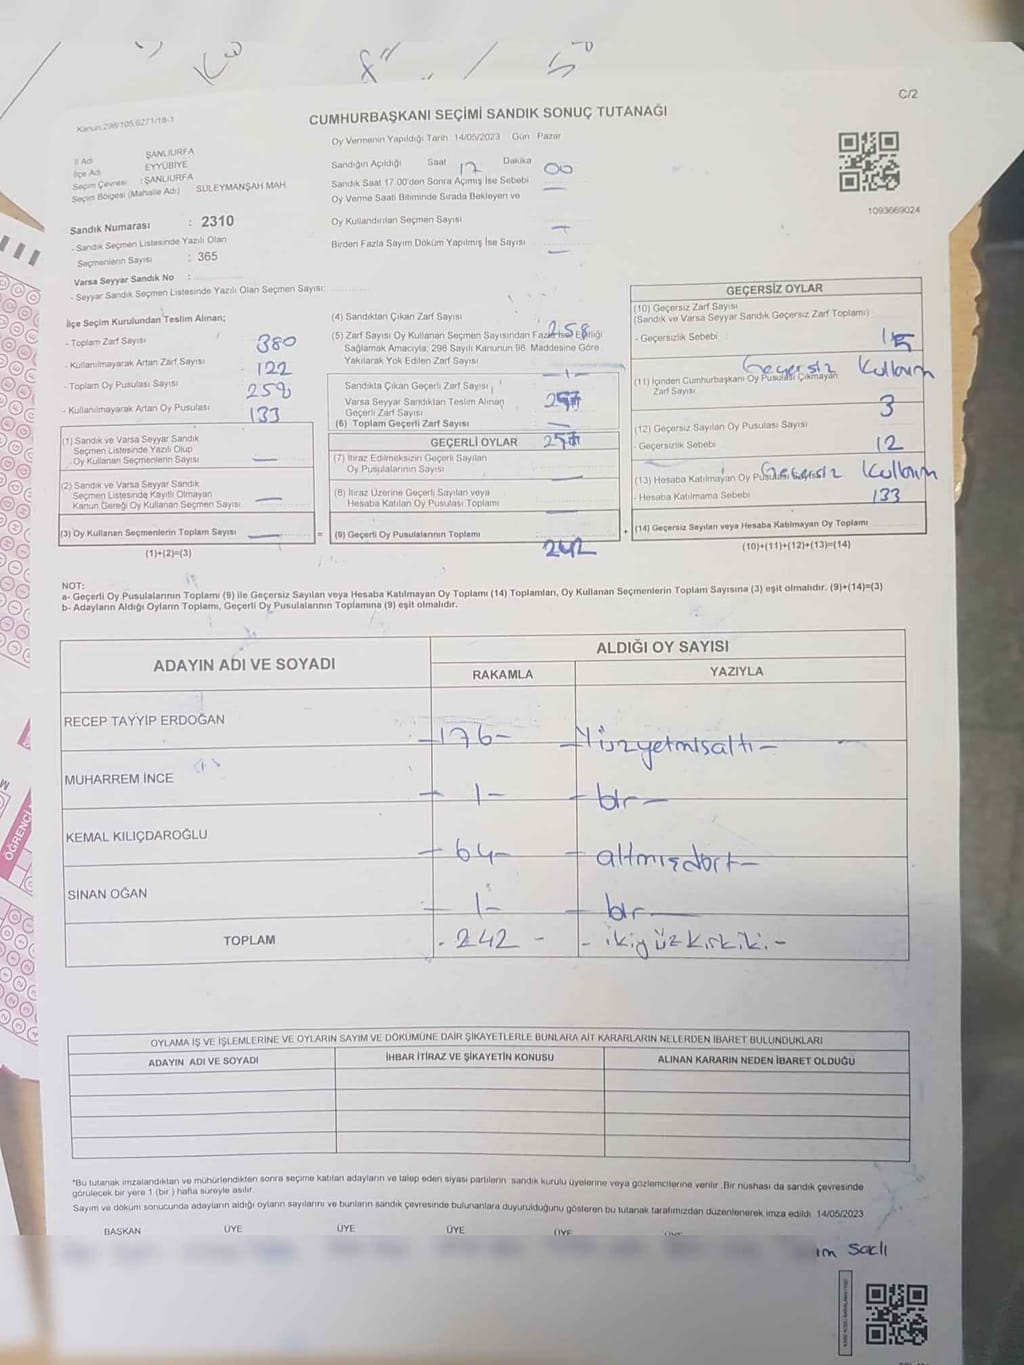 C/2
Kanun:298/105,6271/18-1
CUMHURBAŞKANI SEÇİMİ SANDIK SONUÇ TUTANAĞI
Oy Vermenin Yapıldığı Tarih 14/05/2023 Gün Pazar
İl Adı ŞANLIURFA
İlçe Adı EYYÜBİYE
Seçim Çevresi : ŞANLIURFA
Seçim Bölgesi (Mahalle Adı) SÜLEYMANŞAH MAH.
Sandık Numarası : 2310
- Sandık Seçmen Listesinde Yazılı Olan
Seçmenlerin Sayısı : 365
Varsa Seyyar Sandık No :
- Seyyar Sandık Seçmen Listesinde Yazılı Olan Seçmen Sayısı:
Sandığın Açıldığı Saat 17 Dakika 00
Sandık Saat 17:00'den Sonra Açımış İse Sebebi
Oy Verme Saati Bitiminde Sırada Bekleyen ve
Oy Kullandırılan Seçmen Sayısı
Birden Fazla Sayım Döküm Yapılmış İse Sayısı
1093669024
İlçe Seçim Kurulundan Teslim Alınan;
- Toplam Zarf Sayısı 380
- Kullanılmayarak Artan Zarf Sayısı 122
- Toplam Oy Pusulası Sayısı 258
- Kullanılmayarak Artan Oy Pusulası 133
(1) Sandık ve Varsa Seyyar Sandık
Seçmen Listesinde Yazılı Olup
Oy Kullanan Seçmenlerin Sayısı
(2) Sandık ve Varsa Seyyar Sandık
Seçmen Listesinde Kayıtlı Olmayan
Kanun Gereği Oy Kullanan Seçmen Sayısı
(3) Oy Kullanan Seçmenlerin Toplam Sayısı
(1)+(2)=(3)
(4) Sandıktan Çıkan Zarf Sayısı
258
(5) Zarf Sayısı Oy Kullanan Seçmen Sayısından Fazla İse Eşitliği
Sağlamak Amacıyla; 298 Sayılı Kanunun 98. Maddesine Göre
Yakılarak Yok Edilen Zarf Sayısı
-1-
Sandıkta Çıkan Geçerli Zarf Sayısı
257
Varsa Seyyar Sandıktan Teslim Alınan
Geçerli Zarf Sayısı
(6) Toplam Geçerli Zarf Sayısı
GEÇERLİ OYLAR
257
(7) İtiraz Edilmeksizin Geçerli Sayılan
Oy Pusulalarının Sayısı
(8) İtiraz Üzerine Geçerli Sayılan veya
Hesaba Katılan Oy Pusulası Toplamı
= (9) Geçerli Oy Pusulalarının Toplamı +
242
GEÇERSİZ OYLAR
(10) Geçersiz Zarf Sayısı
(Sandık ve Varsa Seyyar Sandık Geçersiz Zarf Toplamı)
- Geçersizlik Sebebi
15
Geçersiz Kullanım
(11) İçinden Cumhurbaşkanı Oy Pusulası Çıkmayan
Zarf Sayısı
3
(12) Geçersiz Sayılan Oy Pusulası Sayısı
- Geçersizlik Sebebi
12
Geçersiz Kullanım
(13) Hesaba Katılmayan Oy Pusulası Sayısı
- Hesaba Katılmama Sebebi
133
(14) Geçersiz Sayılan veya Hesaba Katılmayan Oy Toplamı
(10)+(11)+(12)+(13)=(14)
NOT:
a- Geçerli Oy Pusulalarının Toplamı (9) ile Geçersiz Sayılan veya Hesaba Katılmayan Oy Toplamı (14) Toplamları, Oy Kullanan Seçmenlerin Toplam Sayısına (3) eşit olmalıdır. (9)+(14)=(3)
b- Adayların Aldığı Oyların Toplamı, Geçerli Oy Pusulalarının Toplamına (9) eşit olmalıdır.
ADAYIN ADI VE SOYADI
ALDIĞI OY SAYISI
RAKAMLA
YAZIYLA
RECEP TAYYİP ERDOĞAN
-176- -Yüzyetmisaltı-
MUHARREM İNCE
- 1- - bir -
KEMAL KILIÇDAROĞLU
- 64- - altmışdört-
SİNAN OĞAN
- 1- - bir -
TOPLAM - 242 - - ikiyüzkırkiki -
OYLAMA İŞ VE İŞLEMLERİNE VE OYLARIN SAYIM VE DÖKÜMÜNE DAİR ŞİKAYETLERLE BUNLARA AİT KARARLARIN NELERDEN İBARET BULUNDUKLARI
ADAYIN ADI VE SOYADI
İHBAR İTİRAZ VE ŞİKAYETİN KONUSU
ALINAN KARARIN NEDEN İBARET OLDUĞU
*Bu tutanak imzalandıktan ve mühürlendikten sonra seçime katılan adayların ve talep eden siyasi partilerin sandık kurulu üyelerine veya gözlemcilerine verilir. Bir nüshası da sandık çevresinde
görülecek bir yere 1 (bir) hafta süreyle asılır.
Sayım ve döküm sonucunda adayların aldığı oyların sayılarını ve bunların sandık çevresinde bulunanlara duyurulduğunu gösteren bu tutanak tarafımızdan düzenlenerek imza edildi. 14/05/2023
BAŞKAN ÜYE ÜYE ÜYE ÜYE
ÖĞRENCİ